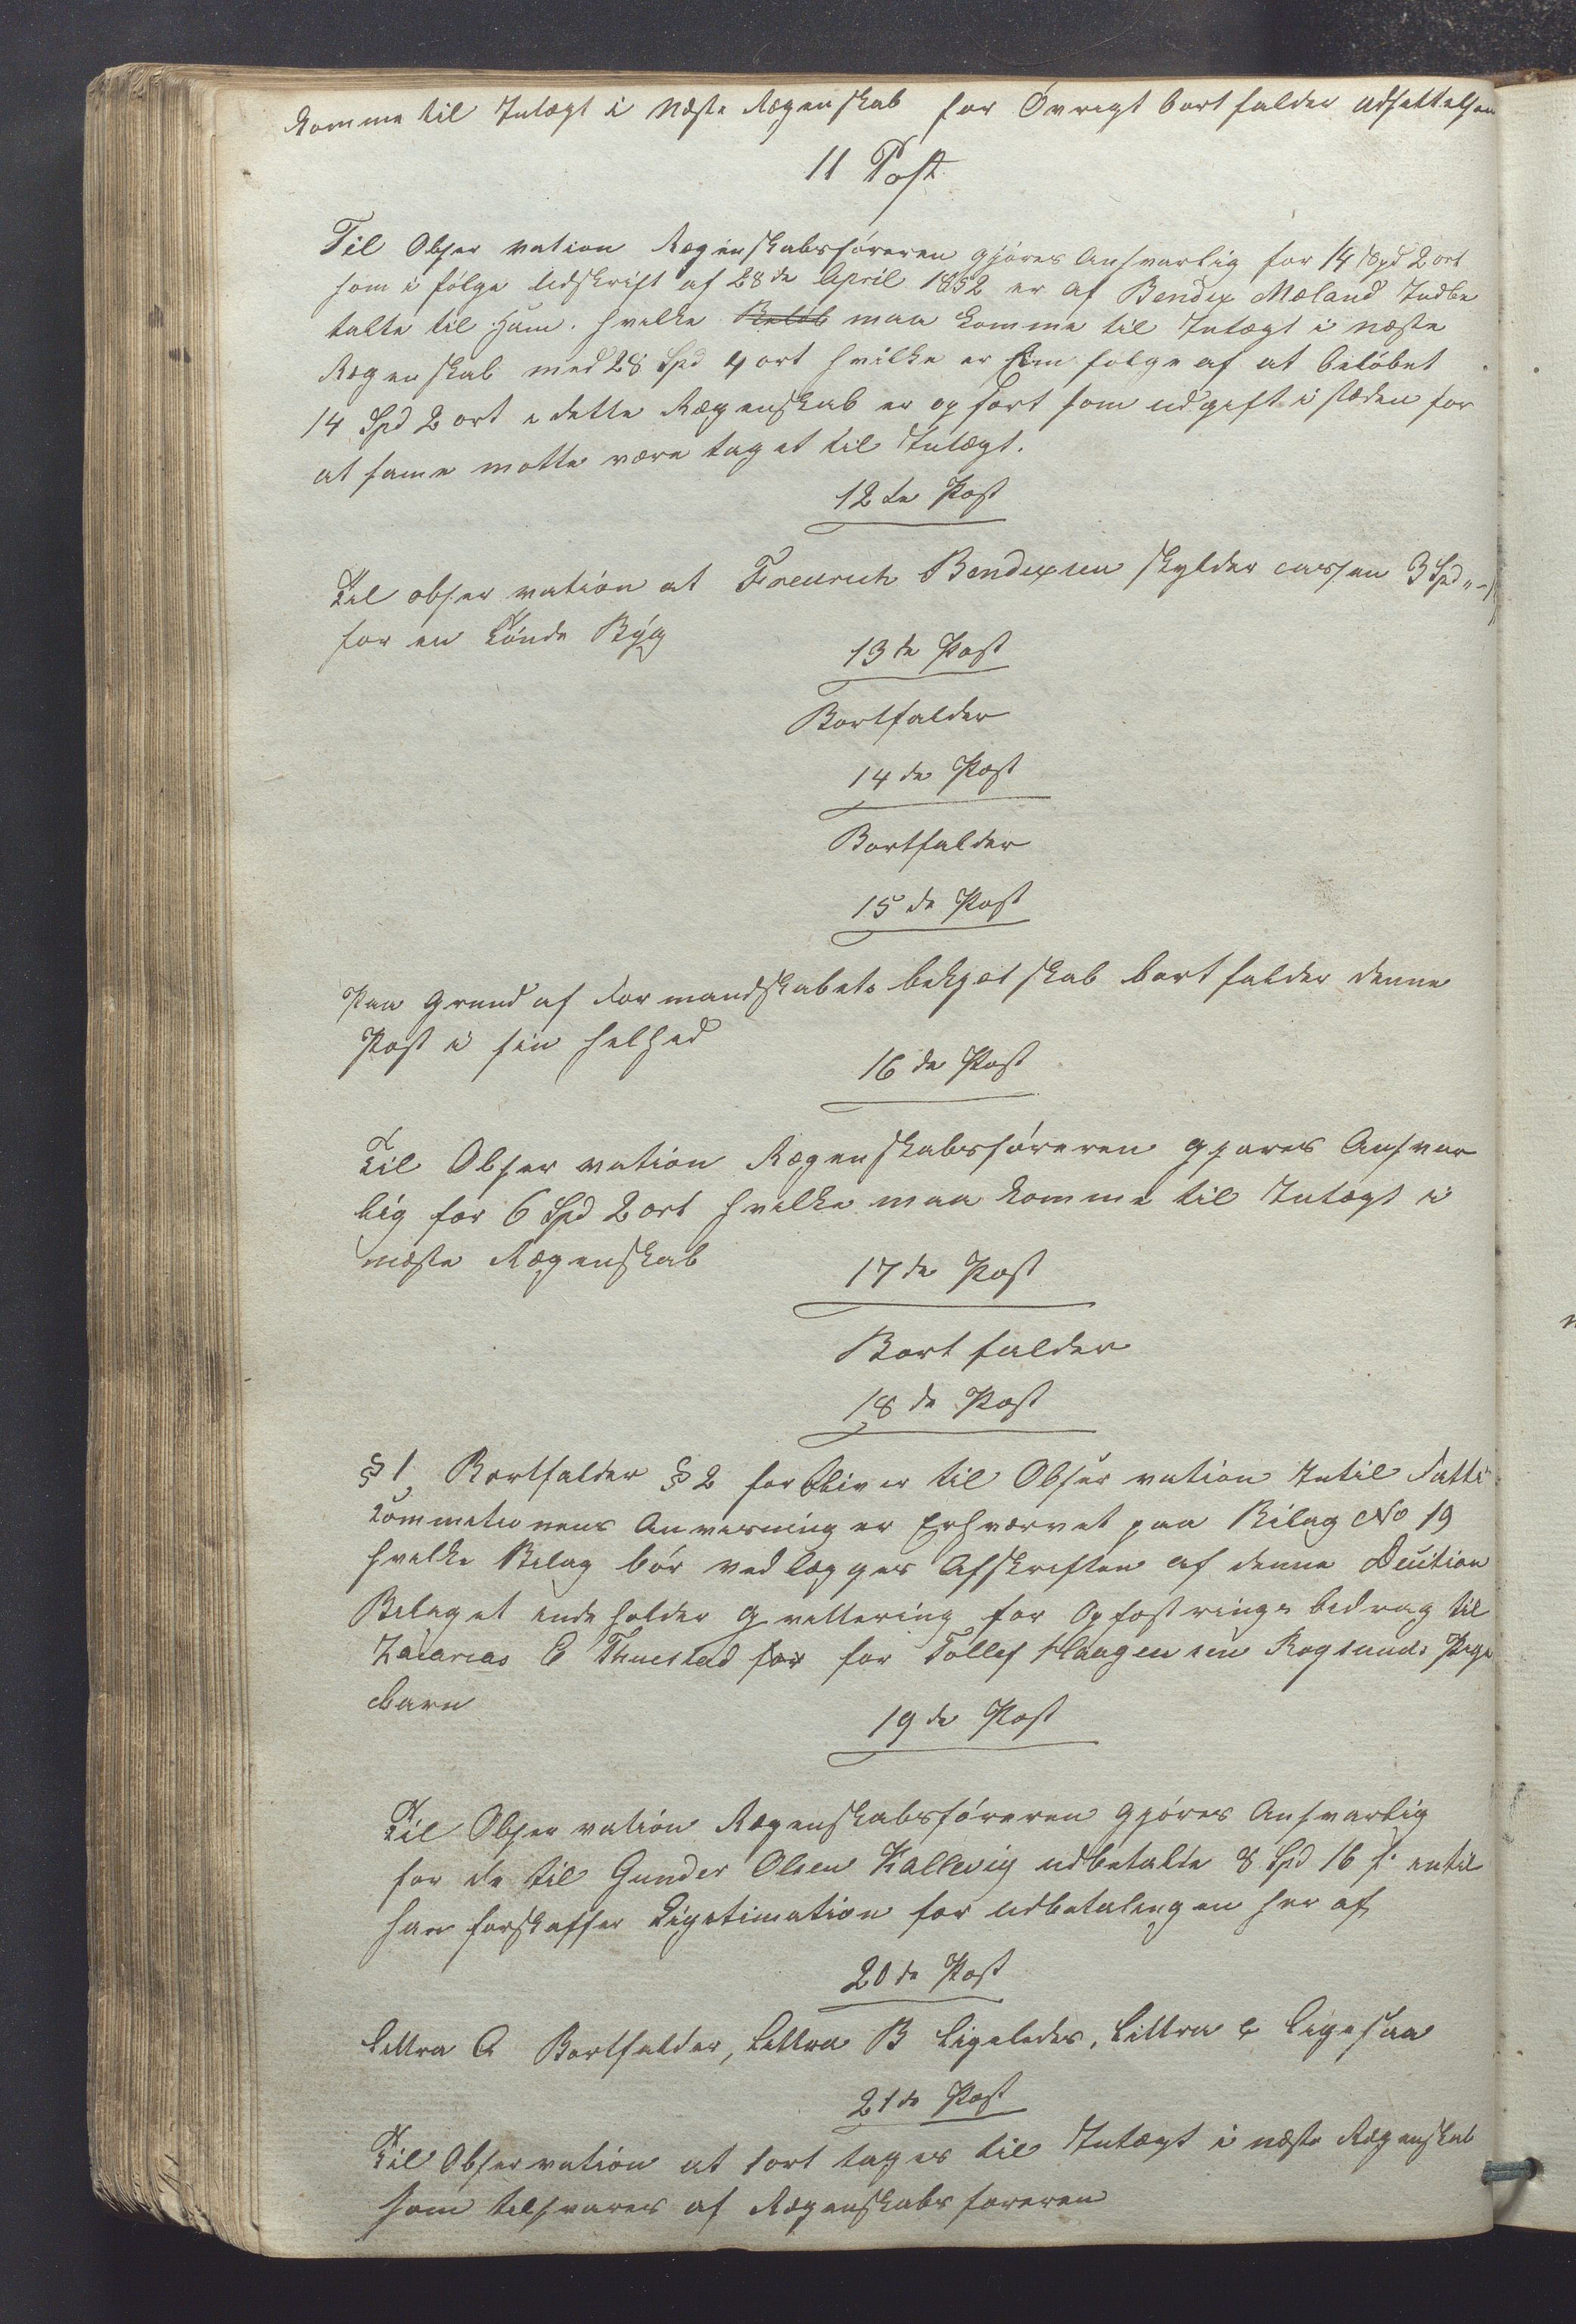 komme til Intægt i næste Regenskab for Øvrigt bortfalder Udsættelsen
11 Post
Til Observation Regenskabsføreren gjøres Ansvarlig for 14 Spd 2 ort
som i følge Udskrift af 28de April 1852 er af Bendix Mæland Indbe
talte til Ham. hvilke Beløb maa komme til Intægt i næste
Regenskab med 28 Spd 4 ort hvilke er en følge af at beløbet
14 Spd 2 ort i dette Regenskab er opført som udgift i stæden for
at same motte være taget til Intægt.
12te Post
Til observation at Fredrich Bendixsen skylder cassen 3 Spd
for en Tønde Byg
13de Post
Bortfalder
14de Post
Bortfalder
15de Post
Paa Grund af Formandskabets bekjæntskab bortfalder denne
Post i sin helhed
16de Post
Til Observation Regenskabsføreren gjøres Ansvar
lig for 6 Spd 2 ort hvilke maa komme til Intægt i
næste Regenskab
17de Post
Bortfalder
18de Post
§ 1 Bortfalder § 2 forbliver til Observation Intil Fatti
Commitionens Anvisning er Erhværvet paa Bilag No 19
hvilke Bilag bør vedlægges Afskriften af denne Decition
Bilaget indeholder qvittering for Opfostrings bidrag til
Zacarias E Thuestad for for Tollef Haagensen Rogsunds Pige
barn
19de Post
Til Observation Regenskabsføreren gjøres Ansvarlig
for de til Gunder Olsen Kallevig udbetalte 8 Spd 16 s. intil
han forskaffer Ligetimation for Udbetalingen her af
20de Post
Littra A Bortfalder, Littra B Ligeledes, Littra c Ligesaa
21de Post
Til Observation at 1 ort tages til Intægt i næste Regenskab
som tilsvares af Regenskabsføreren